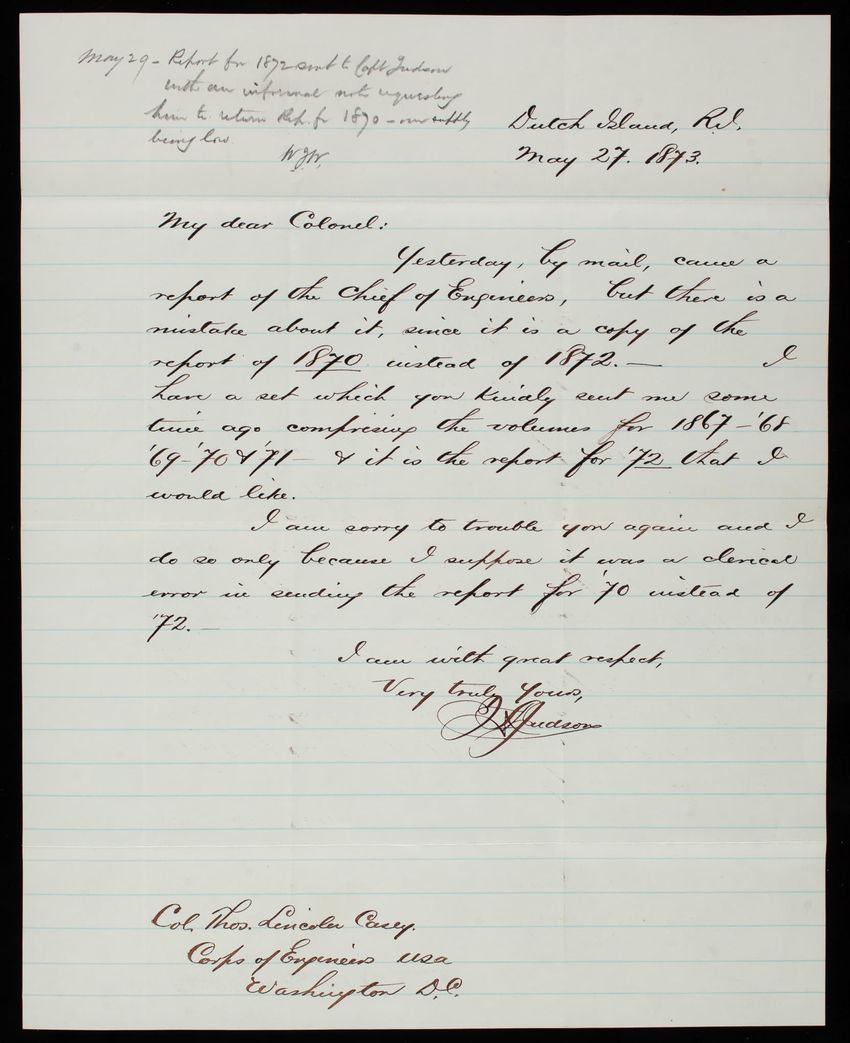 May 29 - Report for 1872 sent to Capt Judson
with an informal note requesting
him to return Rep. for 1870 - our supply
being low.
Dutch Island, R.I.
May 27. 1873.
My dear Colonel:
Yesterday, by mail, came a
report of the Chief of Engineers, but there is a
mistake about it, since it is a copy of the
report of 1870 instead of 1872. — I
have a set which you kindly sent me some
time ago comprising the volumes for 1867-'68
'69-'70 & '71 — & it is the report for '72 that I
would like.
I am sorry to trouble you again and I
do so only because I suppose it was a clerical
error in sending the report for '70 instead of
'72. —
I am with great respect,
Very truly Yours,
Judson
Col. Thos. Lincoln Casey.
Corps of Engineers USA
Washington D.C.